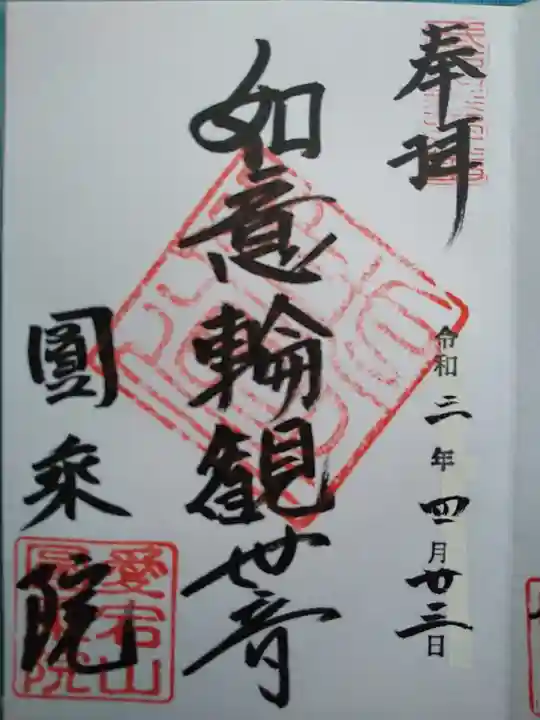 奉拝
令和二年四月廿三日
如意輪観世音
圓乗院
愛宕山